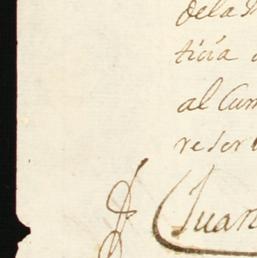 dela
ticia
al Cum
reser
Juan